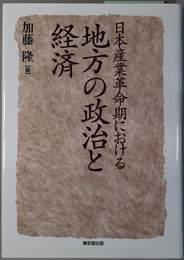 日本産業革命期における
地方の政治と
経済
加藤 隆[編]
東京堂出版